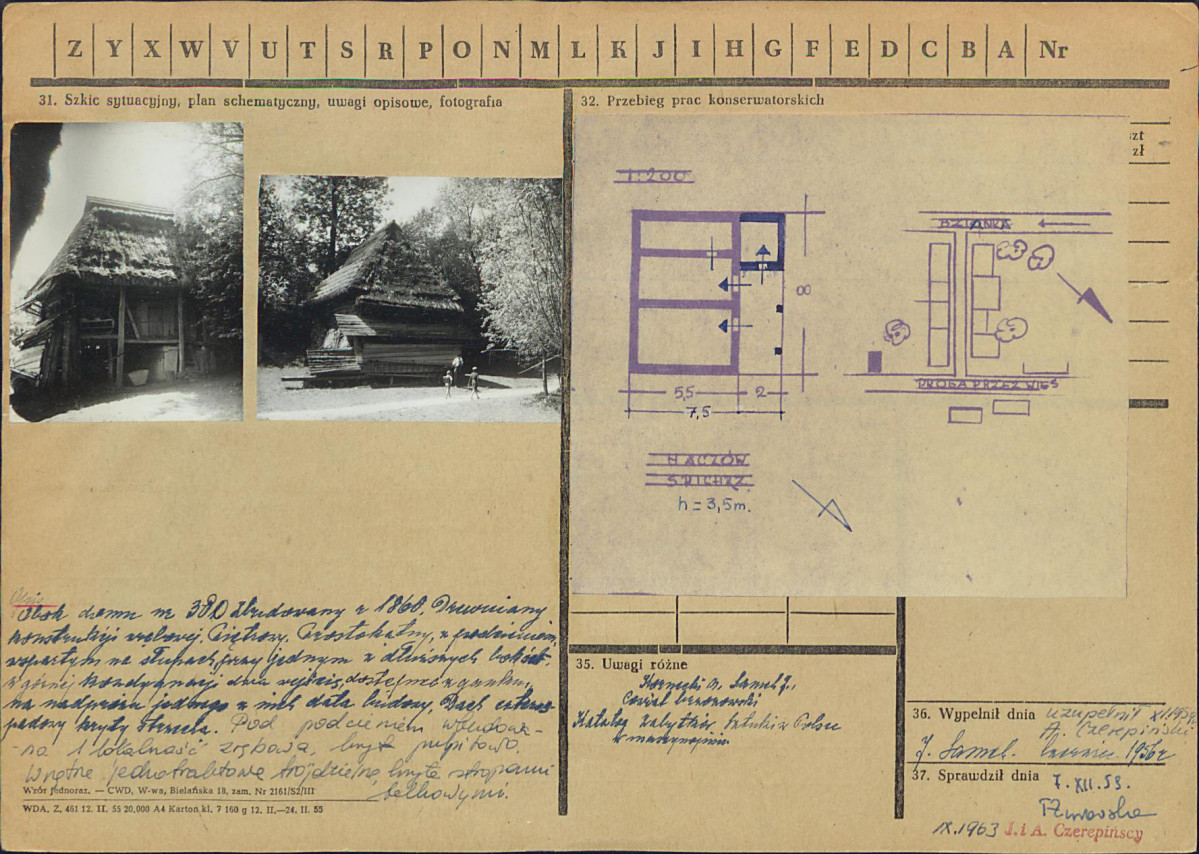 Z Y X W V U T S R P O N M L K J I H G F E D C B A Nr
31. Szkic sytuacyjny, plan schematyczny, uwagi opisowe, fotografia
32. Przebieg prac konserwatorskich
zt
zł
1:200
BZIANKA
8
5,5 2
7,5
DROGA PRZEZ WIEŚ
HACZÓW
SPICHRZ
h = 3,5m.
Obok domu nr 380 Zbudowany r 1860 Drewniany
konstrukcji wieńcowej. Piętrowy. Prostokątny, z podcieniem,
wspartym na słupach, przy jednym z dłuższych boków.
w górnej kondygnacji dwa wejścia, dostępne z ganku,
na nadprożu jednego z nich data budowy. Dach cztero-
spadowy kryty strzechą. Pod podcieniem wbudowa-
-na 1 lokalność zrębowa, kryta pulpitowo.
Wnętrze jednotraktowe trójdzielne, kryte stropami
belkowymi.
Wzór jednoraz. — CWD, W-wa, Bielańska 18, zam. Nr 2161/S2/III
WDA. Z. 461 12. II. 55 20,000 A4 Karton kl. 7 160 g 12. II.—24. II. 55
35. Uwagi różne
Kornecki M., Samek J.,
Powiat brzozowski
Katalog zabytków Sztuki w Polsce
w maszynopisie
36. Wypełnił dnia uzupełnił
A. Czerepiński
J. Samek. czerwiec 1956r
37. Sprawdził dnia 7. XII. 59.
IX.1963 J. i A. Czerepińscy